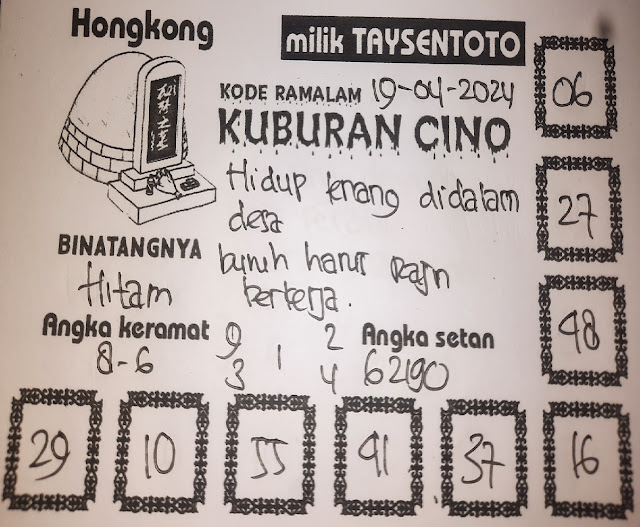 Hongkong
milik TAYSENTOTO
06
KODE RAMALAM 19-04-2024
KUBURAN CINO
Hidup tenang didalam
desa
27
BINATANGNYA
Hitam
buruh harus Rajin
berkerja.
48
Angka keramat
8-6
9 2
1
3 4
Angka setan
62190
29 10 55 41 37 16